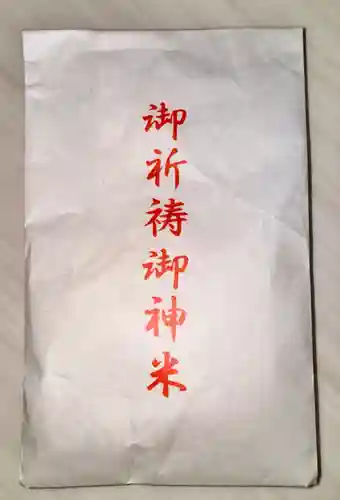 御祈祷御神米